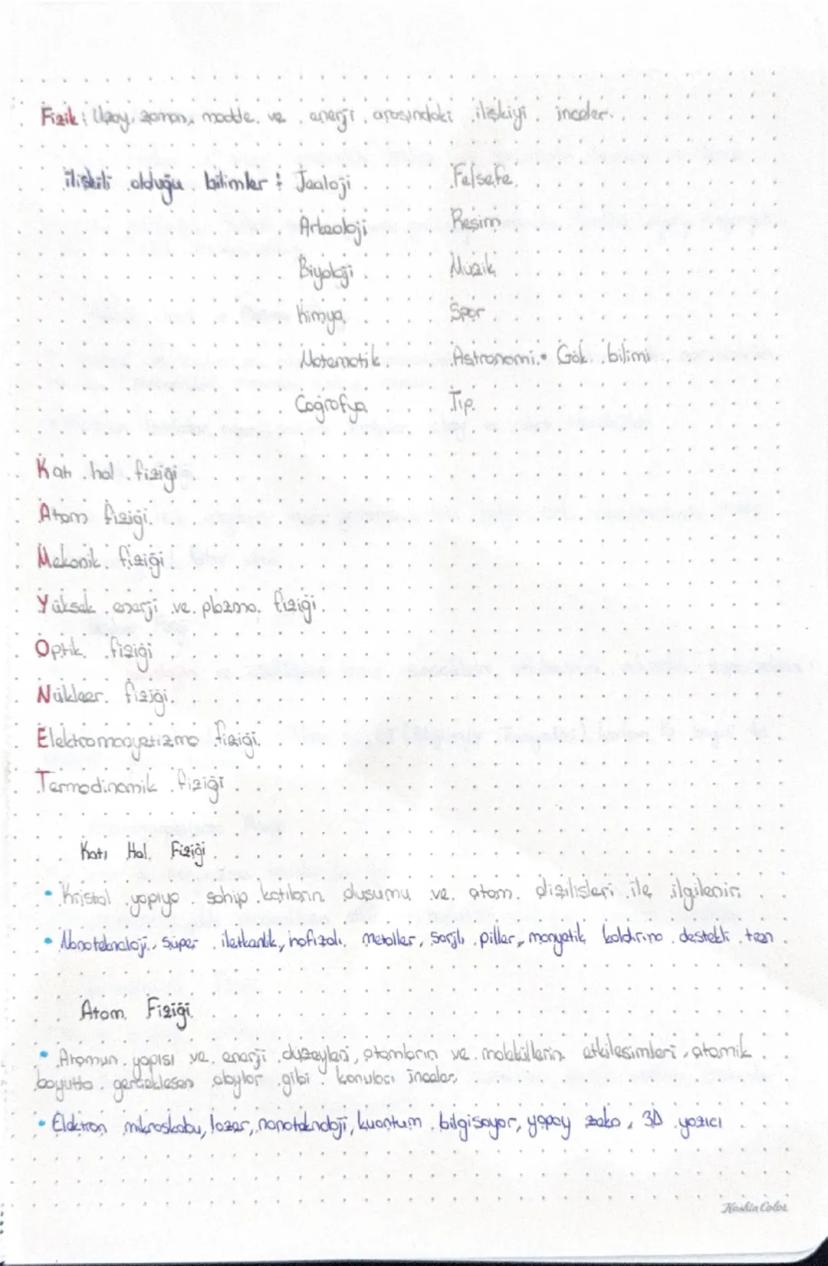 Fizik : Uzay, zaman, madde ve enerji arasındaki ilişkiyi inceler.
ilişkili olduğu bilimler : Jeoloji Felsefe
Arkeoloji Resim
Biyoloji Müzik
Kimya Spor
Matematik Astronomi • Gök bilimi
Coğrafya Tıp
Katı hal fiziği
Atom fiziği
Mekanik fiziği
Yüksek enerji ve plazma fiziği
Optik fiziği
Nükleer fiziği
Elektromanyetizma fiziği
Termodinamik fiziği
Katı Hal Fiziği
• Kristal yapıya sahip katıların durumu ve atom dizilişleri ile ilgilenir.
• Nanoteknoloji, süper iletkenlik, hafızalı metaller, şarjlı piller, manyetik kaldırma destekli tren
Atom Fiziği
• Atomun yapısı ve enerji düzeyleri, atomların ve moleküllerin etkileşimleri, atomik
boyutta gerçekleşen olaylar gibi konuları inceler.
• Elektron mikroskobu, lazer, nanoteknoloji, kuantum bilgisayar, yapay zeka, 3D yazıcı
Keskin Color